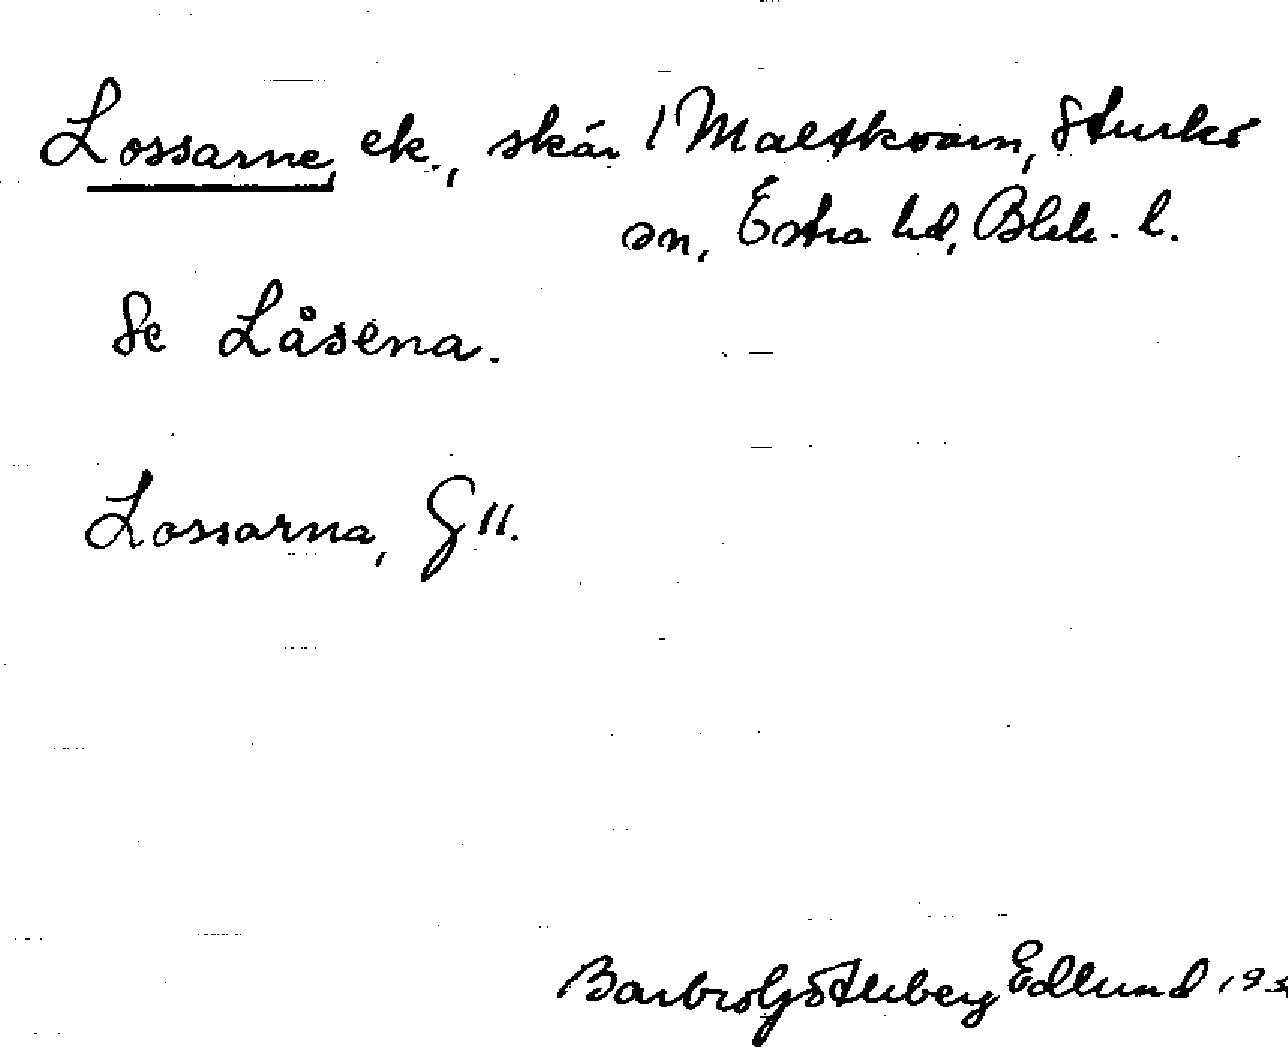 Lossarne, ek., skär i Maltkvarn, Sturkö
sn, Östra hd, Blek. l.
Se Låsena.
Lossarna, G 11.
Barbro Götheberg Edlund